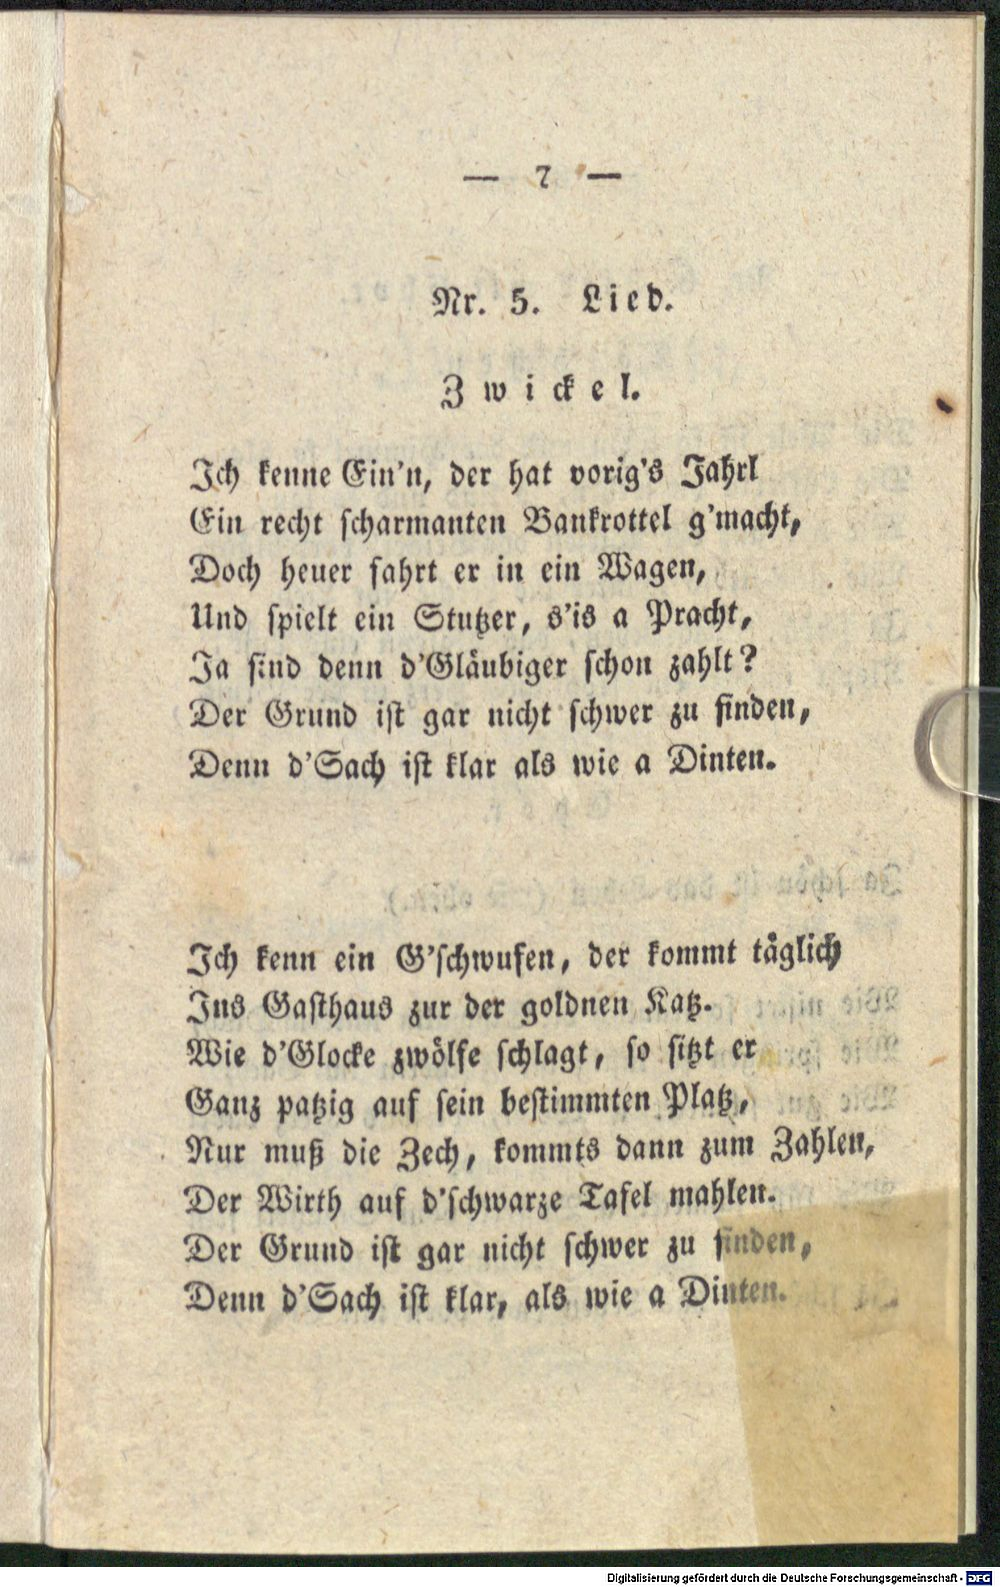 — 7 —
Nr. 5. Lied.
Zwickel.
Ich kenne Ein'n, der hat vorig's Jahrl
Ein recht scharmanten Bankrottel g'macht,
Doch heuer fahrt er in ein Wagen,
Und spielt ein Stutzer, s'is a Pracht,
Ja sind denn d'Gläubiger schon zahlt?
Der Grund ist gar nicht schwer zu finden,
Denn d'Sach ist klar als wie a Dinten.
Ich kenn ein G'schwufen, der kommt täglich
Ins Gasthaus zur der goldnen Katz.
Wie d'Glocke zwölfe schlagt, so sitzt er
Ganz patzig auf sein bestimmten Platz,
Nur muß die Zech, kommts dann zum Zahlen,
Der Wirth auf d'schwarze Tafel mahlen.
Der Grund ist gar nicht schwer zu finden,
Denn d'Sach ist klar, als wie a Dinten.
Digitalisierung gefördert durch die Deutsche Forschungsgemeinschaft - DFG